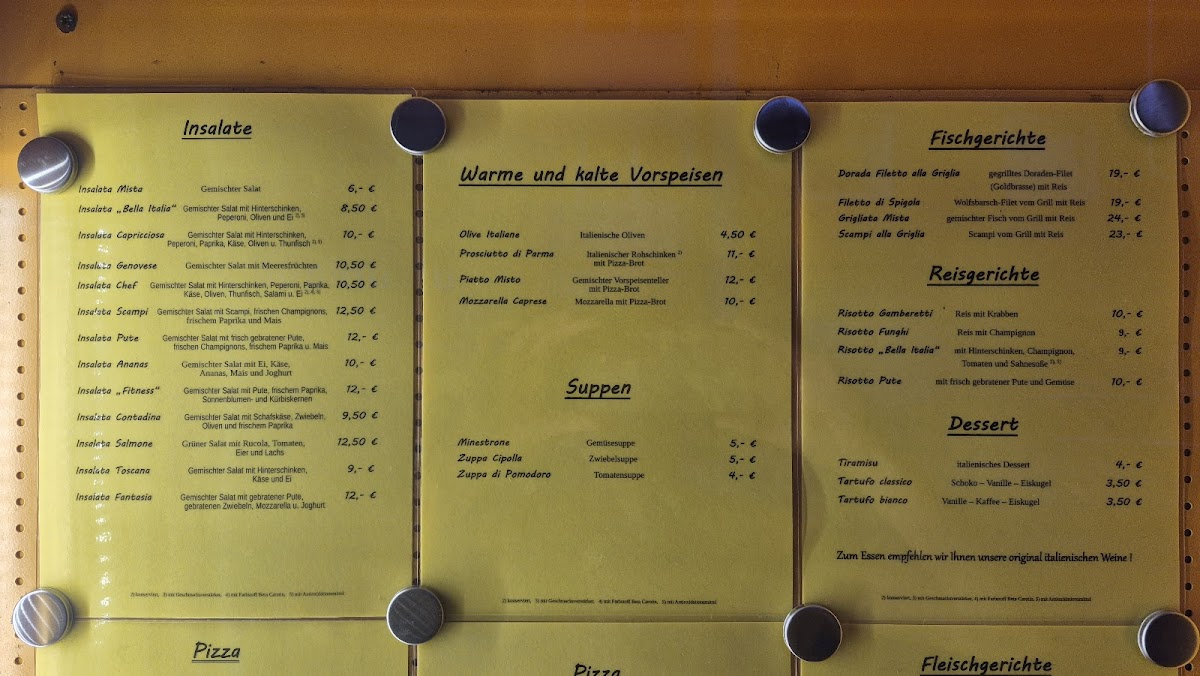 Insalate
Insalata Mista Gemischter Salat 6,- €
Insalata „Bella Italia“ Gemischter Salat mit Hinterschinken, 8,50 €
Peperoni, Oliven und Ei
Insalata Capricciosa Gemischter Salat mit Hinterschinken, 10,- €
Peperoni, Paprika, Käse, Oliven u. Thunfisch
Insalata Genovese Gemischter Salat mit Meeresfrüchten 10,50 €
Insalata Chef Gemischter Salat mit Hinterschinken, Peperoni, Paprika, 10,50 €
Käse, Oliven, Thunfisch, Salami u. Ei
Insalata Scampi Gemischter Salat mit Scampi, frischen Champignons, 12,50 €
frischem Paprika und Mais
Insalata Pute Gemischter Salat mit frisch gebratener Pute, 12,- €
frischen Champignons, frischem Paprika u. Mais
Insalata Ananas Gemischter Salat mit Ei, Käse, 10,- €
Ananas, Mais und Joghurt
Insalata „Fitness“ Gemischter Salat mit Pute, frischem Paprika, 12,- €
Sonnenblumen- und Kürbiskernen
Insalata Contadina Gemischter Salat mit Schafskäse, Zwiebeln, 9,50 €
Oliven und frischem Paprika
Insalata Salmone Grüner Salat mit Rucola, Tomaten, 12,50 €
Eier und Lachs
Insalata Toscana Gemischter Salat mit Hinterschinken, 9,- €
Käse und Ei
Insalata Fantasia Gemischter Salat mit gebratener Pute, 12,- €
gebratenen Zwiebeln, Mozzarella u. Joghurt
2) konserviert, 3) mit Geschmacksverstärker, 4) mit Farbstoff Beta Carotin, 5) mit Antioxidationsmittel
Pizza
Warme und kalte Vorspeisen
Olive Italiane Italienische Oliven 4,50 €
Prosciutto di Parma Italienischer Rohschinken 2) 11,- €
mit Pizza-Brot
Piatto Misto Gemischter Vorspeisenteller 12,- €
mit Pizza-Brot
Mozzarella Caprese Mozzarella mit Pizza-Brot 10,- €
Suppen
Minestrone Gemüsesuppe 5,- €
Zuppa Cipolla Zwiebelsuppe 5,- €
Zuppa di Pomodoro Tomatensuppe 4,- €
2) konserviert, 3) mit Geschmacksverstärker, 4) mit Farbstoff Beta Carotin, 5) mit Antioxidationsmittel
Pizza
Fischgerichte
Dorada Filetto alla Griglia gegrilltes Doraden-Filet 19,- €
(Goldbrasse) mit Reis
Filetto di Spigola Wolfsbarsch-Filet vom Grill mit Reis 19,- €
Grigliata Mista gemischter Fisch vom Grill mit Reis 24,- €
Scampi alla Griglia Scampi vom Grill mit Reis 23,- €
Reisgerichte
Risotto Gamberetti Reis mit Krabben 10,- €
Risotto Funghi Reis mit Champignon 9,- €
Risotto „Bella Italia“ mit Hinterschinken, Champignon, 9,- €
Tomaten und Sahnesoße
Risotto Pute mit frisch gebratener Pute und Gemüse 10,- €
Dessert
Tiramisu italienisches Dessert 4,- €
Tartufo classico Schoko – Vanille – Eiskugel 3,50 €
Tartufo bianco Vanille – Kaffee – Eiskugel 3,50 €
Zum Essen empfehlen wir Ihnen unsere original italienischen Weine !
2) konserviert, 3) mit Geschmacksverstärker, 4) mit Farbstoff Beta Carotin, 5) mit Antioxidationsmittel
Fleischgerichte